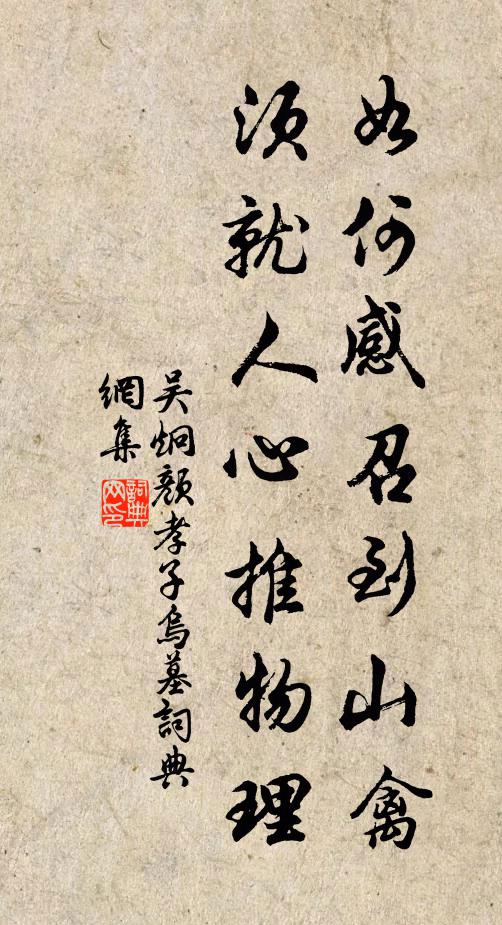 如何感召到山禽
须就人心推物理
吴炯颜孝子乌墓词典
网集
詞典
网印